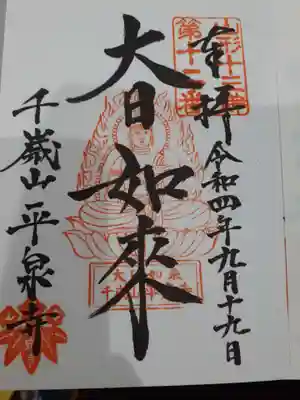 奉拝
令和四年九月十九日
山形十三佛
第十二番
大日如來
千歳山平泉寺